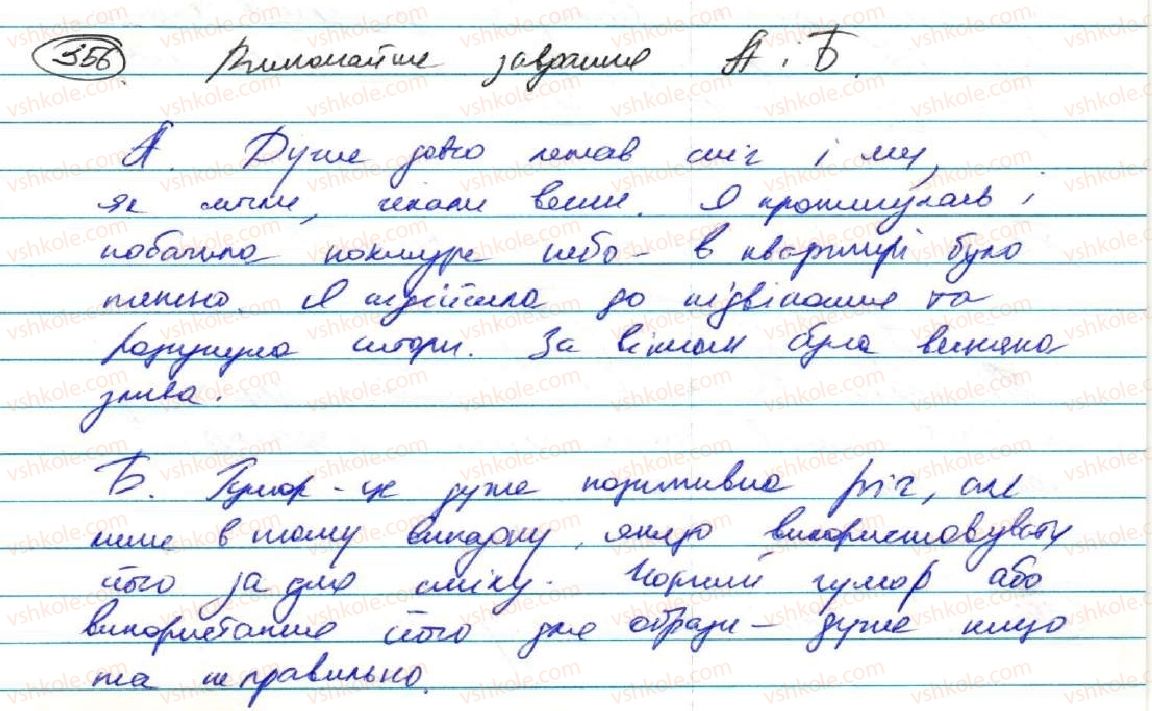 356. Виконайте завдання А і Б.
А. Дуже довго лежав сніг і ми,
як могли, чекали весни. Я прокинулась і
побачила похмуре небо – в квартирі було
темно. Я підійшла до підвіконня та
розсунула штори. За вікном була весняна
злива.
Б. Гумор – це дуже позитивна річ, але
лише в тому випадку, якщо використовувать
його задля сміху. Чорний гумор або
використання його для образи – дуже нице
та неправильно.